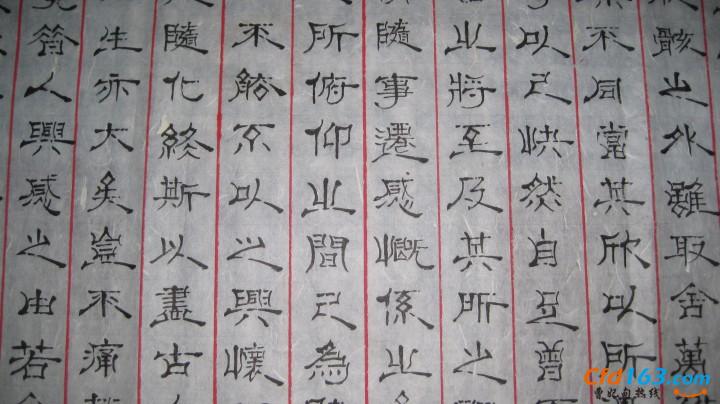 骸之外雖取舍萬
不同當其欣以所
以己快然自足曾
之將至及其所之
隨事遷感慨係之
所俯仰之間已為
不能不以之興懷
隨化終斯以盡古
生亦大矣豈不痛
人興感之由若
Cfd163.com
曹妃甸热线